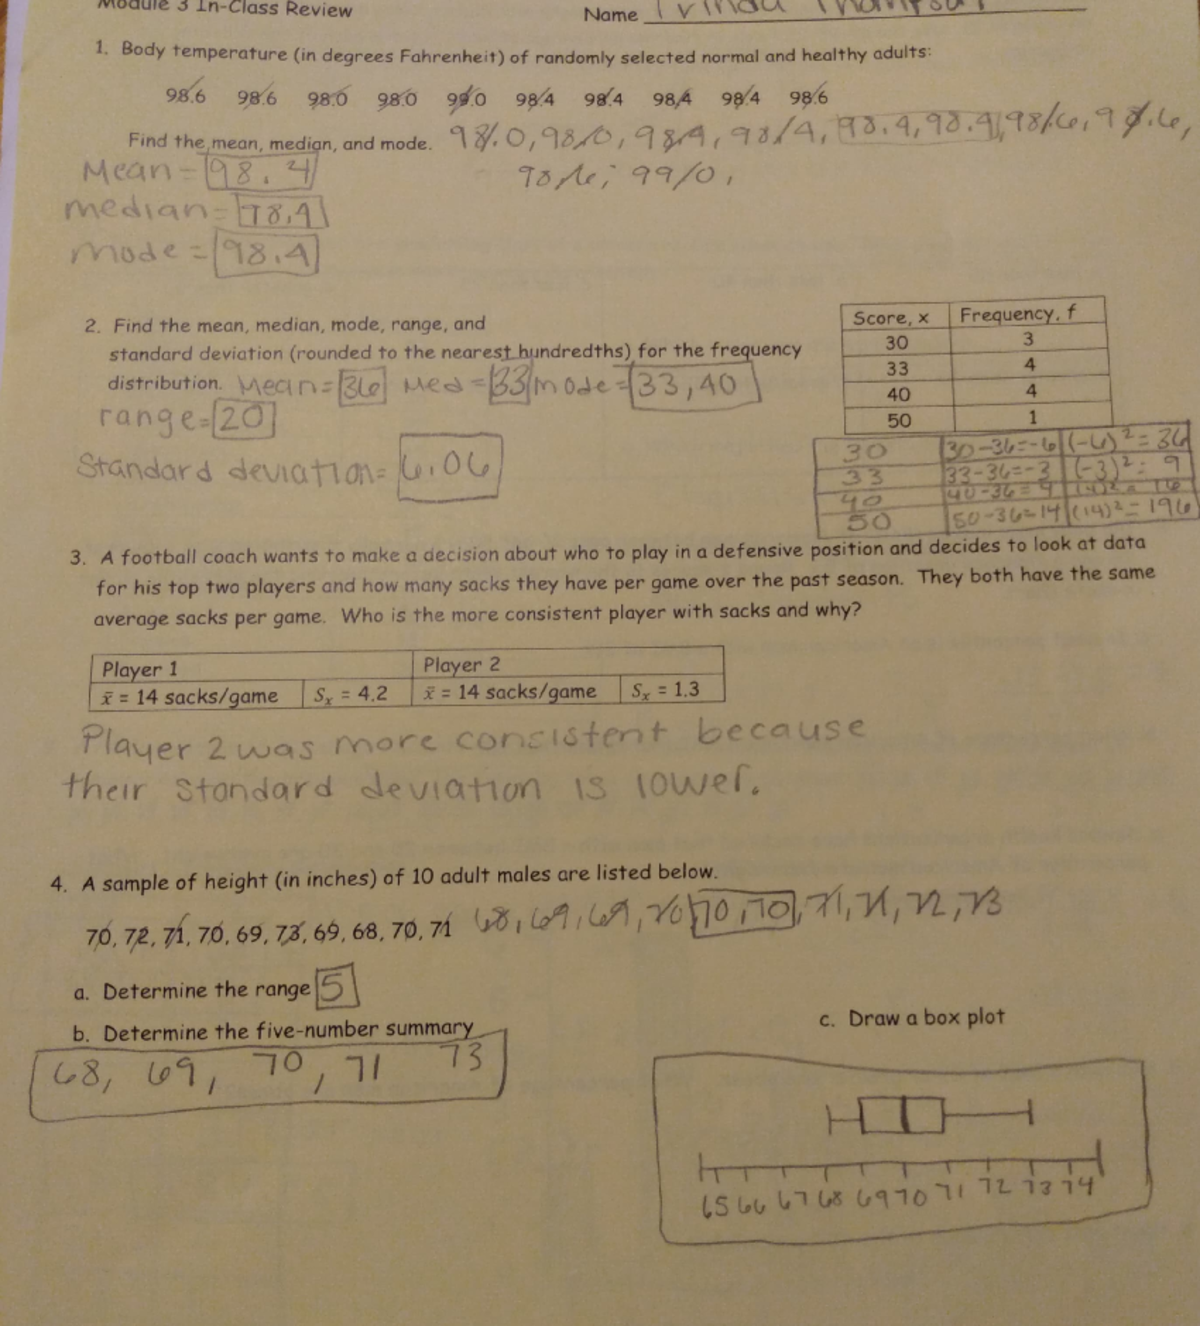 Module 3 In-Class Review Name
1. Body temperature (in degrees Fahrenheit) of randomly selected normal and healthy adults:
98.6 98.6 98.0 98.0 99.0 98.4 98.4 98.4 98.4 98.6
Find the mean, median, and mode. 98.0, 98.0, 98.4, 98.4, 98.4, 98.4, 98.6, 98.6,
98.6, 99.0,
Mean = 98.4
median = 98.4
mode = 98.4
2. Find the mean, median, mode, range, and
standard deviation (rounded to the nearest hundredths) for the frequency
distribution. Mean = 36 Med = 33 mode = 33, 40
range = 20
Standard deviation = 6.06
Score, x Frequency, f
30 3
33 4
40 4
50 1
30 30-36=-6 (-6)² = 36
33 33-36=-3 (-3)² = 9
40 40-36=4 (4)² = 16
50 50-36=14 (14)² = 196
3. A football coach wants to make a decision about who to play in a defensive position and decides to look at data
for his top two players and how many sacks they have per game over the past season. They both have the same
average sacks per game. Who is the more consistent player with sacks and why?
Player 1 Player 2
x̄ = 14 sacks/game Sx = 4.2 x̄ = 14 sacks/game Sx = 1.3
Player 2 was more consistent because
their standard deviation is lower.
4. A sample of height (in inches) of 10 adult males are listed below.
70, 72, 71, 70, 69, 73, 69, 68, 70, 71 68, 69, 69, 70, 70, 70, 71, 71, 72, 73
a. Determine the range 5
b. Determine the five-number summary
68, 69, 70, 71 73
c. Draw a box plot
65 66 67 68 69 70 71 72 73 74